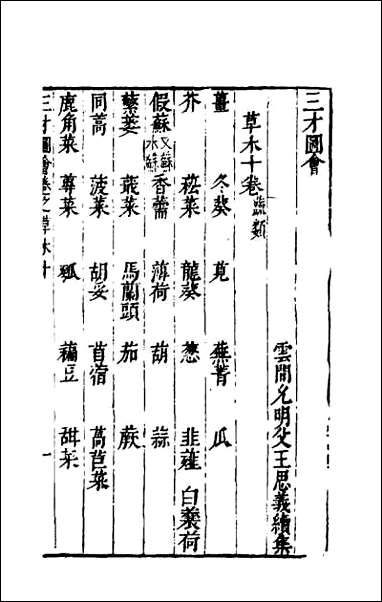 三才圖會
雲間允明父王思義續集
草木十卷 蔬類
薑 冬葵 莧 蕪菁 瓜
芥 菘菜 龍葵 葱 韭薤 白蘘荷
假蘇 又蘇水蘇 香薷 薄荷 葫 蒜
蘩蔞 蕺菜 馬蘭頭 茄 蕨
同蒿 菠菜 胡荽 苜蓿 萵苣菜
鹿角菜 蓴菜 瓠 藊豆 甜菜
三才圖會卷之草木十 一